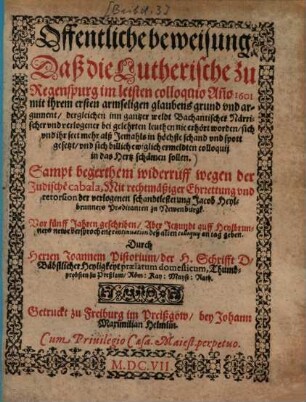 Offentliche beweisung
Daß die Lutherische zu
Regenspurg im letsten colloquio Año 1601
mit ihrem ersten armseligen glaubens grund vnd ar-
gument / dergleichen inn gantzer weldt Bachantischer Närri-
scher vnd verlogener bei gelehrten leuth en nie erhört worden / sich
vnd ihr sect mehr alß Jemahls in höchste schand vnd spott
gesetzt / vnd sich billich ewiglich ermeldten colloquij
in das Hertz schämen sollen.
Sampt begerthem widerruff wegen der
Jüdische cabala, Mit rechtmäßiger Ehrrettung vnd
retorsion der verlogenen schandtlesterung Jacob Heyl-
brunners Prædicanten zu Newenburgk.
Vor fünff Jahren geschriben / Aber Jetzundt auff Heylbrun-
ners newe versprochene continuation deß alten colloquij an tag geben.
Durch
Herren Joannem Pistorium / der H. Schrifft D.
Bäbstlicher Heyligkeyt prælatum domesticum, Thumb-
probsten zu Breßlaw / Röm: Kay: Mayst: Rath.
Getruckt zu Freiburg im Preißgöw / bey Johann
Maximilian Helmlin.
Cum Privilegio Cæsa. Maiest. perpetuo.
M.DC.VII.